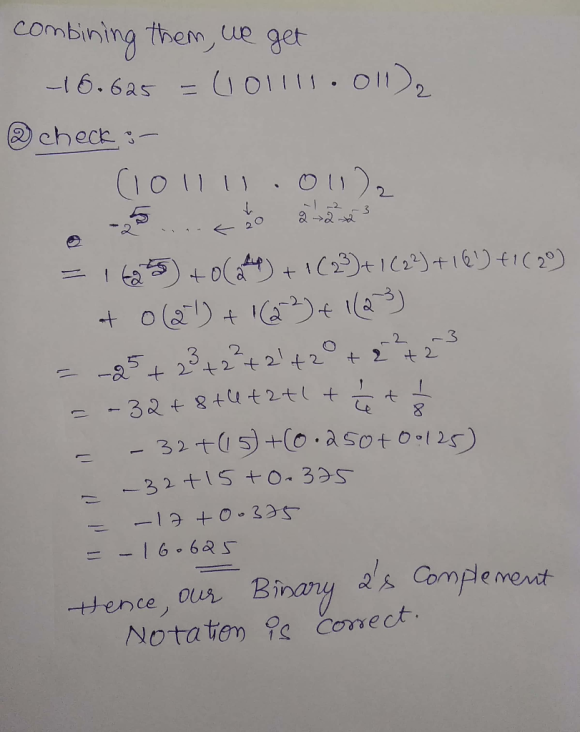 combining them, we get
-16.625 = (101111.011)₂
② check :-
(101111.011)₂
-2⁵ .... ← ↓ 2⁰ 2⁻¹→2⁻²→2⁻³
= 1(-2⁵) + 0(2⁴) + 1(2³)+1(2²)+1(2¹)+1(2⁰)
+ 0(2⁻¹) + 1(2⁻²) + 1(2⁻³)
= -2⁵ + 2³+2²+2¹+2⁰ + 2⁻²+2⁻³
= -32 + 8+4+2+1 + 1/4 + 1/8
= -32+(15)+(0.250+0.125)
= -32+15+0.375
= -17+0.375
= -16.625
Hence, our Binary 2's Complement
Notation is correct.